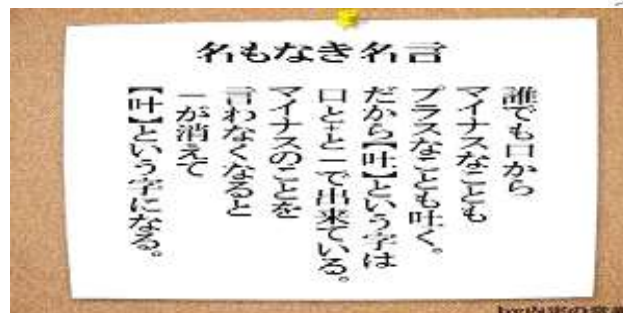 名もなき名言
誰でも口から
マイナスなことも
プラスなことも吐く。
だから【吐】という字は
口と+と-で出来ている。
マイナスのことを
言わなくなると
-が消えて
【叶】という字になる。